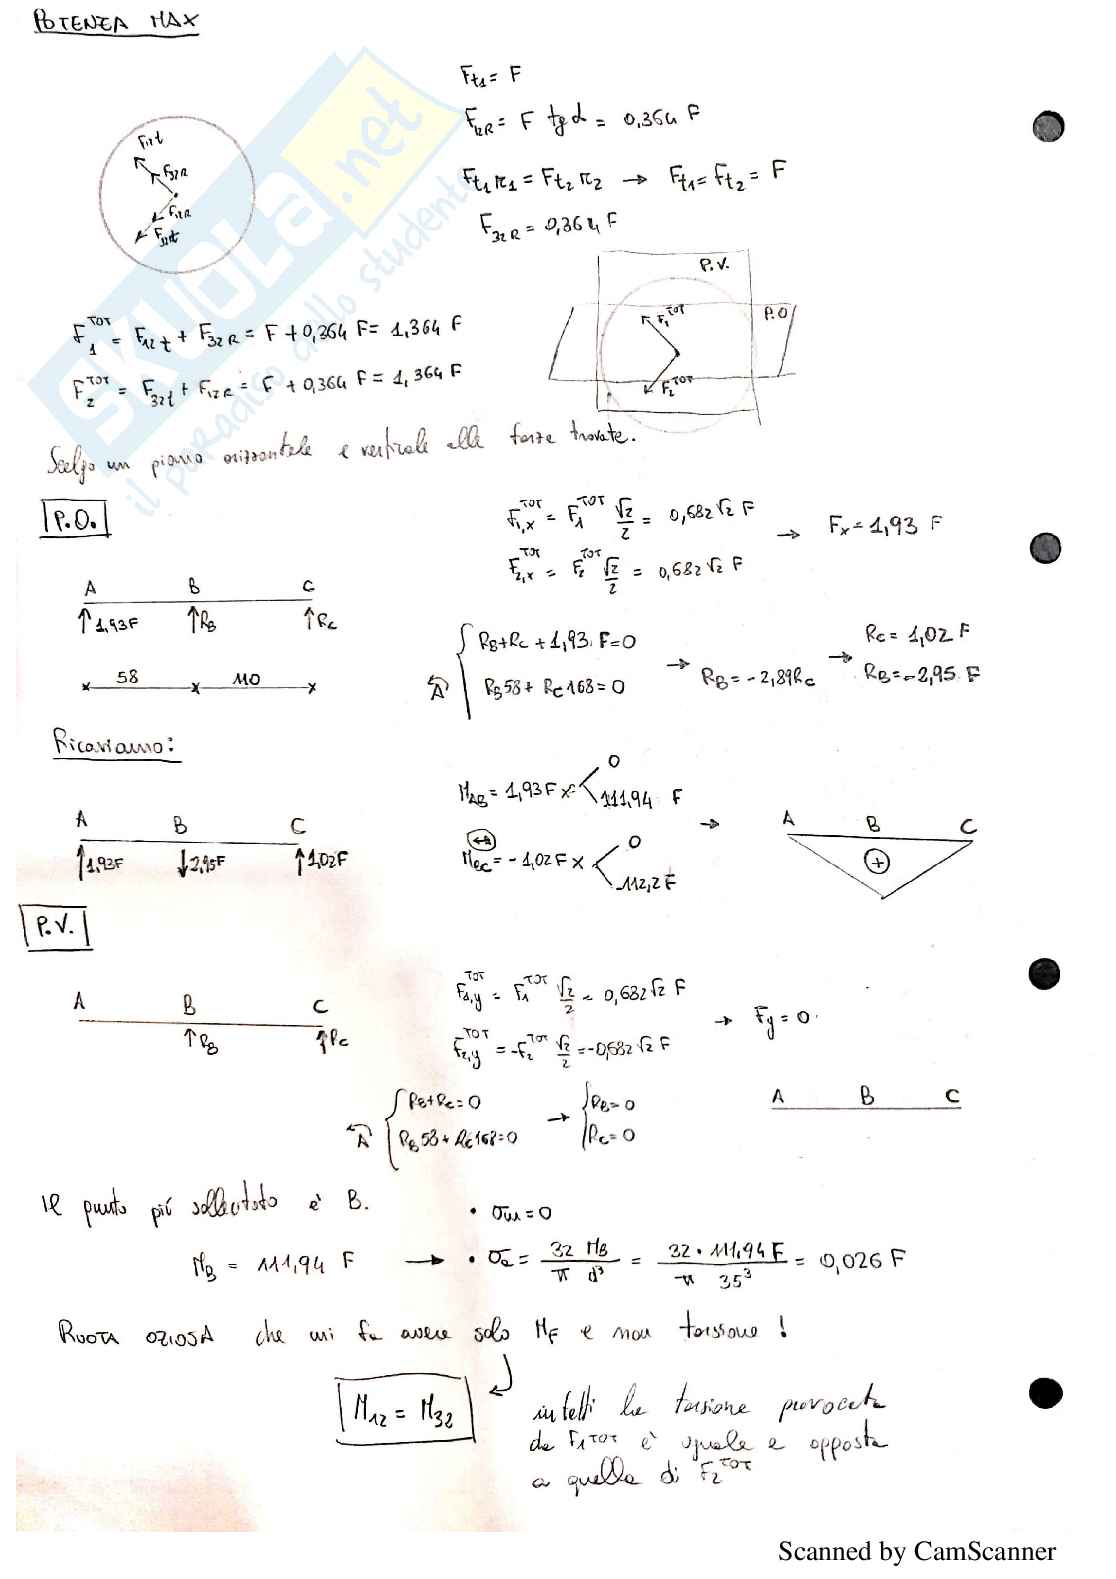 POTENZA MAX
F12t
F32R
F12R
F32t
Ft1 = F
F12R = F tg α = 0,364 F
Ft1 r1 = Ft2 r2 → Ft1 = Ft2 = F
F32R = 0,364 F
P.V.
P.O
F1^TOT
F2^TOT
F1^TOT = F12t + F32R = F + 0,364 F = 1,364 F
F2^TOT = F32t + F12R = F + 0,364 F = 1,364 F
Scelgo un piano orizzontale e verticale alle forze trovate.
P.O.
F1,x^TOT = F1^TOT √2/2 = 0,682 √2 F
F2,x^TOT = F2^TOT √2/2 = 0,682 √2 F
→ Fx = 1,93 F
A B C
↑1,93F ↑RB ↑RC
58 110
A { RB + RC + 1,93 F = 0
RB 58 + RC 168 = 0
→ RB = -2,89 RC →
RC = 1,02 F
RB = -2,95 F
Ricaviamo:
A B C
↑1,93F ↓2,95F ↑1,02F
MAB = 1,93 F x < 0
111,94 F
MBC = -1,02 F x < 0
-112,2 F
→
A B C
+
P.V.
A B C
↑RB ↑RC
F1,y^TOT = F1^TOT √2/2 = 0,682 √2 F
F2,y^TOT = -F2^TOT √2/2 = -0,682 √2 F
→ Fy = 0.
A { RB + RC = 0
RB 58 + RC 168 = 0
→ { RB = 0
RC = 0
A B C
Il punto più sollecitato è B.
MB = 111,94 F →
• σm = 0
• σa = 32 MB / π d³ = 32 · 111,94 F / π 35³ = 0,026 F
RUOTA OZIOSA che mi fa avere solo MF e non torsione !
M12 = M32
infatti la torsione provocata
da F1^TOT è uguale e opposta
a quella di F2^TOT
SKUOLA.net
il paradiso dello studente
Scanned by CamScanner